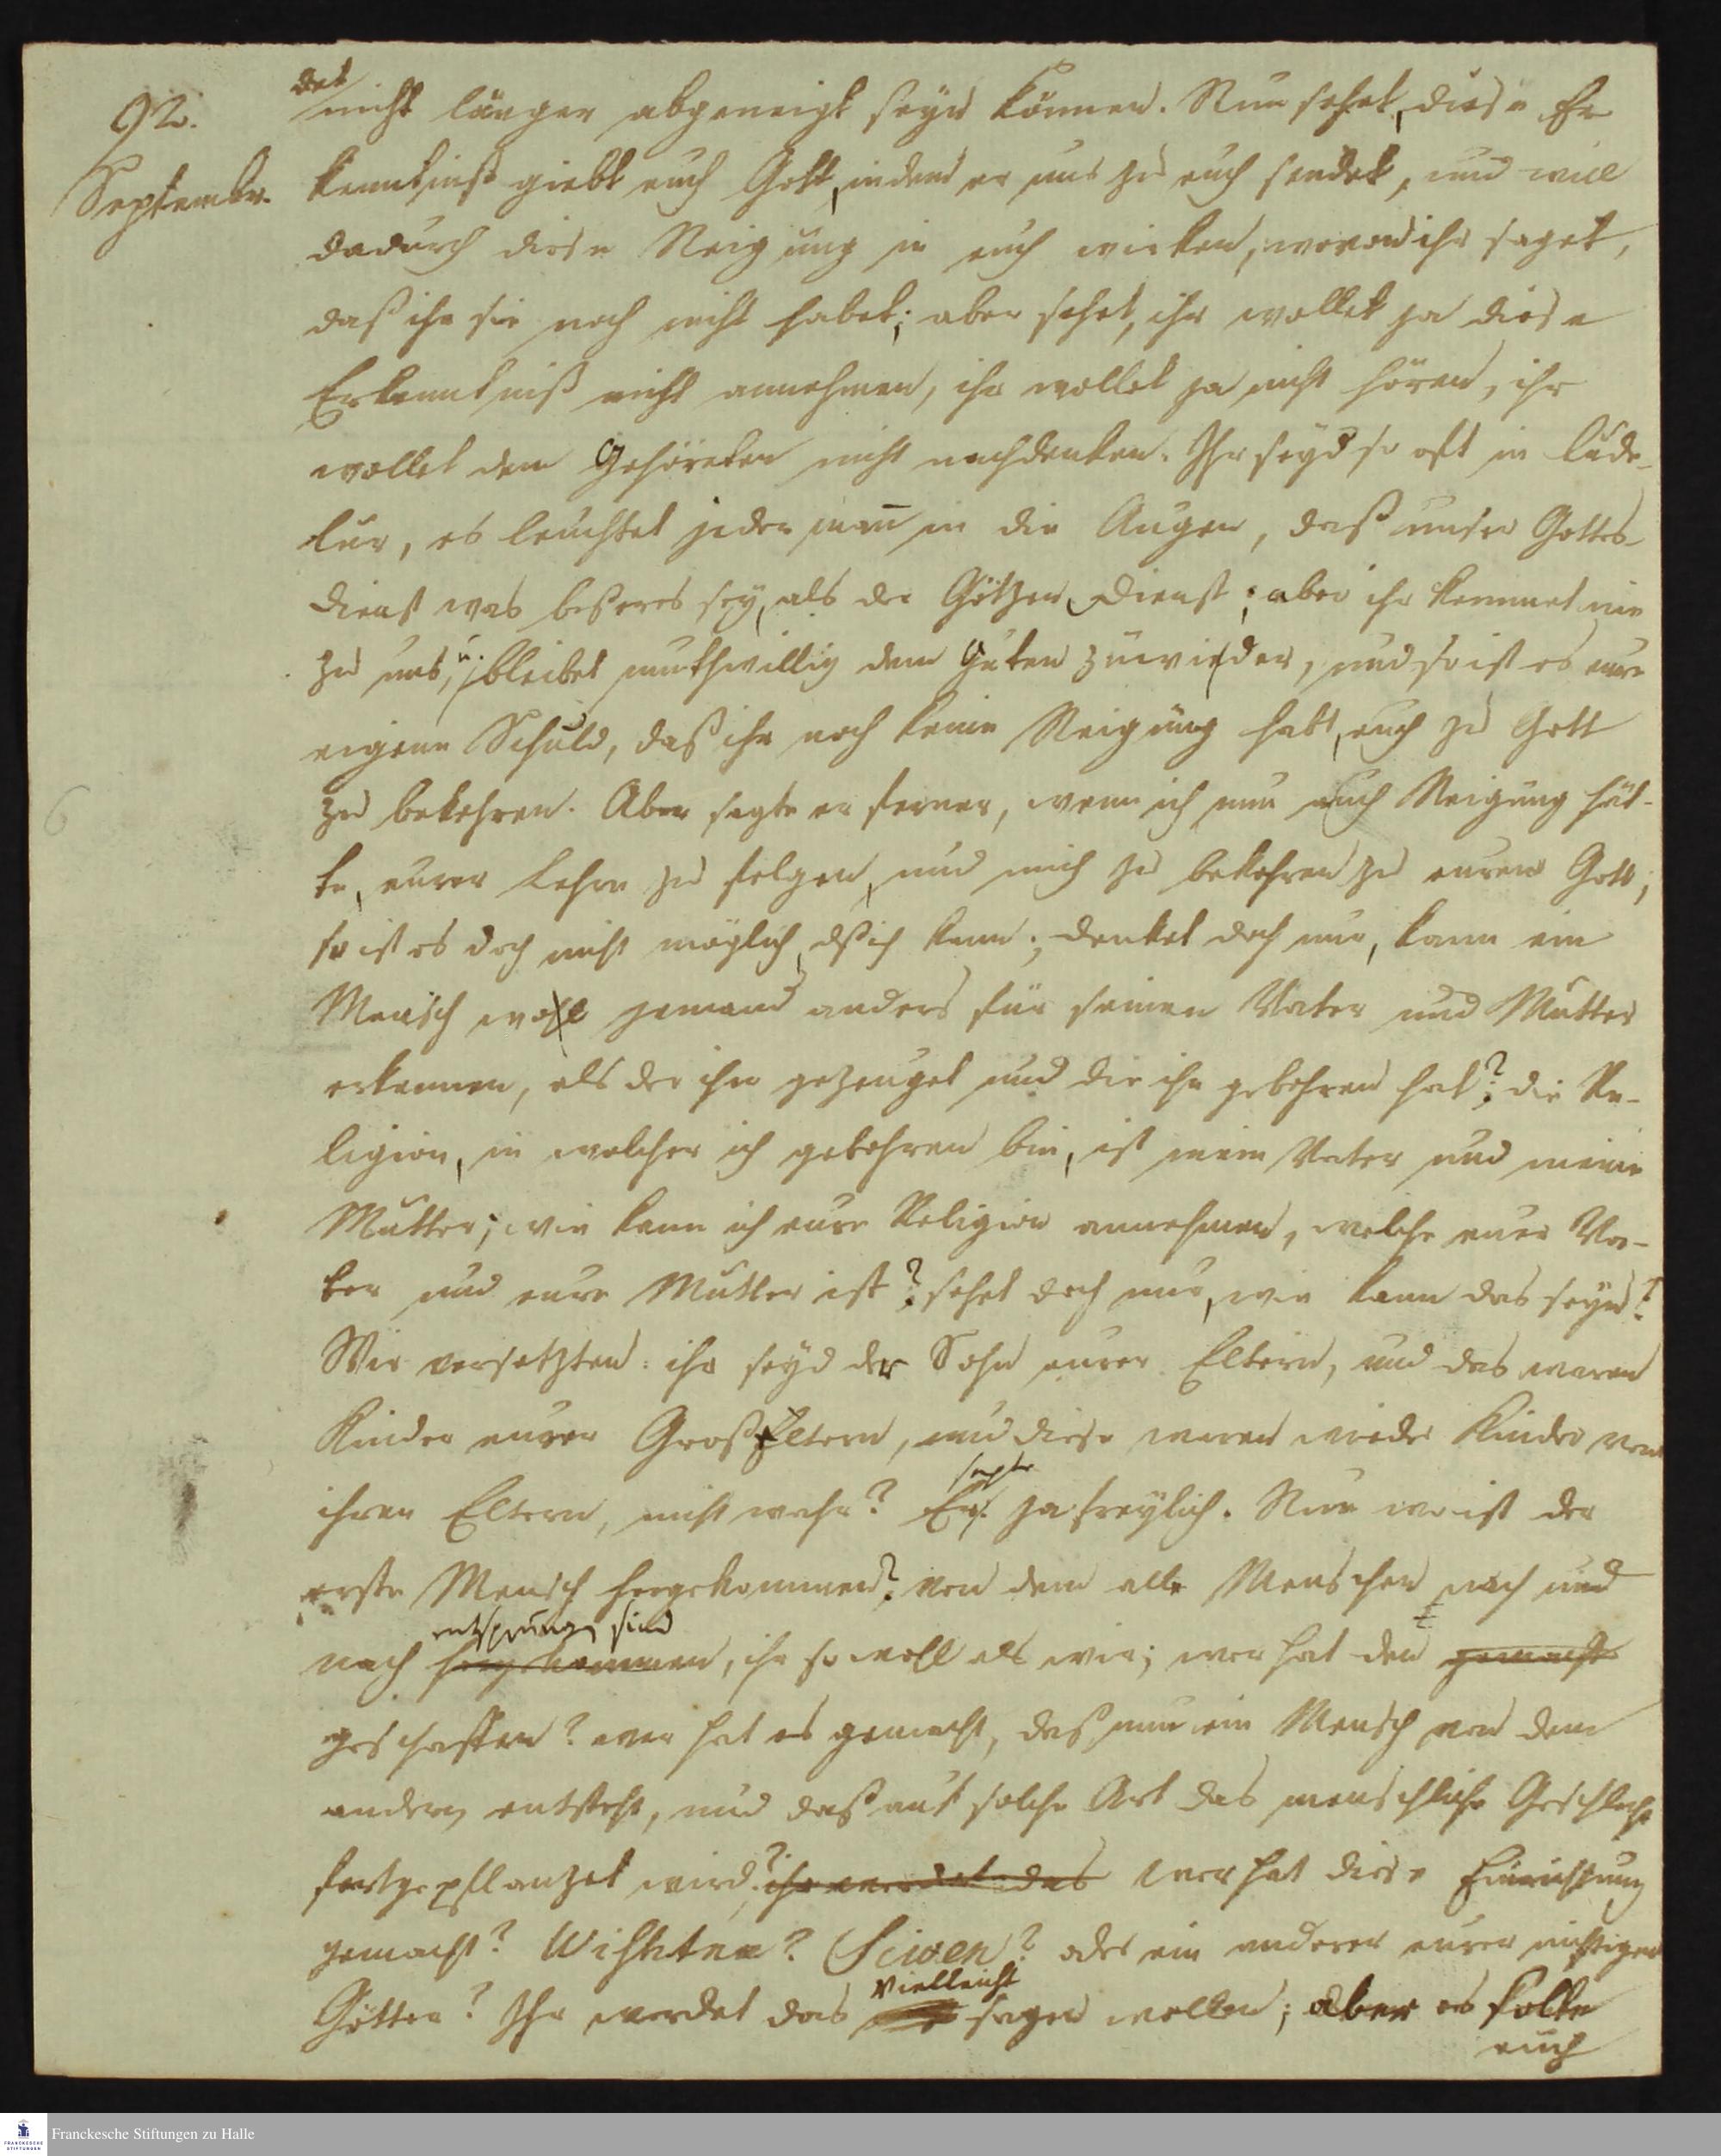 92.
Septembr.
det
nicht länger abgeneigt seyn können. Nun sehet, diese Er
kenntniß giebt euch Gott, indem er uns zu euch sendet, und will
dadurch diese Neigung in euch wirken, wovon ihr saget,
daß ihr sie noch nicht habet; aber sehet, ihr wollet ja diese
Erkenntniß nicht annehmen, ihr wollet ja nicht hören, ihr
wollet dem Gehöreten nicht nachdenken. Ihr seyd so oft in Cude-
lur, es leuchtet jederman̅ in die Augen, daß unser Gottes-
dienst was beßeres sey, als der Götzen Dienst; aber ihr kommet nie
zu uns, u. bleibet muthwillig dem Guten zuwieder, und so ist es eure
eigene Schuld, daß ihr noch keine Neigung habt, euch zu Gott
zu bekehren. Aber sagte er ferner, wenn ich nun auch Neigung hät-
te, eurer Lehre zu folgen, und mich zu bekehren zu eurem Gott;
so ist es doch nicht möglich, dß ich kann; denket doch nur, kann ein
Mensch wohl jemand anders für seinen Vater und Mutter
erkennen, als der ihn gezeuget und die ihn gebohren hat? die Re-
ligion, in welcher ich gebohren bin, ist mein Vater und meine
Mutter; wie kann ich eure Religion annehmen, welche euer Va-
ter und eure Mutter ist? sehet doch nur, wie kann das seyn?
Wir versetzten: ihr seyd der Sohn eurer Eltern, und das waren
Kinder eurer GroßEltern, und diese waren wieder Kinder von
ihren Eltern, nicht wahr? Er sagte ja freylich. Nun wo ist der
erste Mensch hergekommen? von dem alle Menschen nach und
entsprungen sind
nach hergekommen, ihr so woll als wir; wer hat den gemacht
geschaffen? wer hat es gemacht, daß nun ein Mensch von dem
andern entsteht, und daß auf solche Art das menschliche Geschlecht
fortgepflanzet wird? ihr werdet das wer hat diese Einrichtung
gemacht? Wishtnu? Siwen? oder ein anderer eurer nichtigen
Götter? Ihr werdet das vielleicht sagen wollen; aber es sollte
euch
6
Franckesche Stiftungen zu Halle